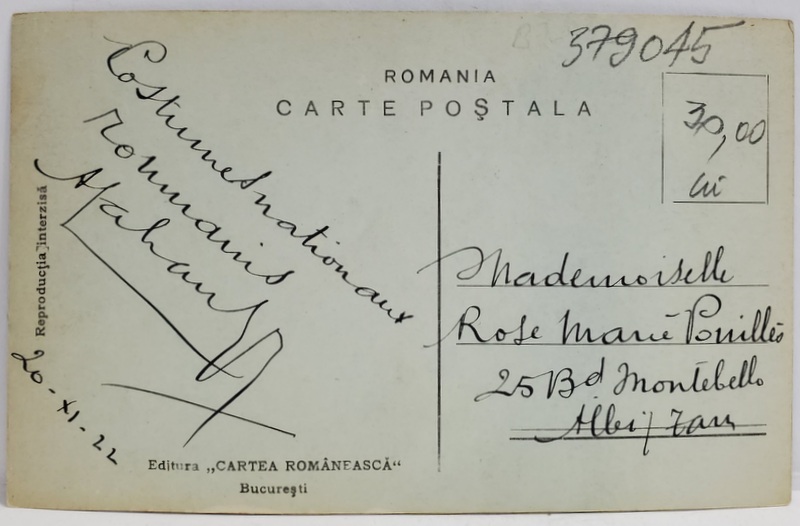 379045
ROMANIA
CARTE POȘTALA
30,00
lei
Costumes nationaux
roumains
Reproducția interzisă
20-XI-22
Mademoiselle
Rose Marie Pouillès
25 Bd Montebello
Albi / Tarn
Editura „CARTEA ROMÂNEASCĂ“
București